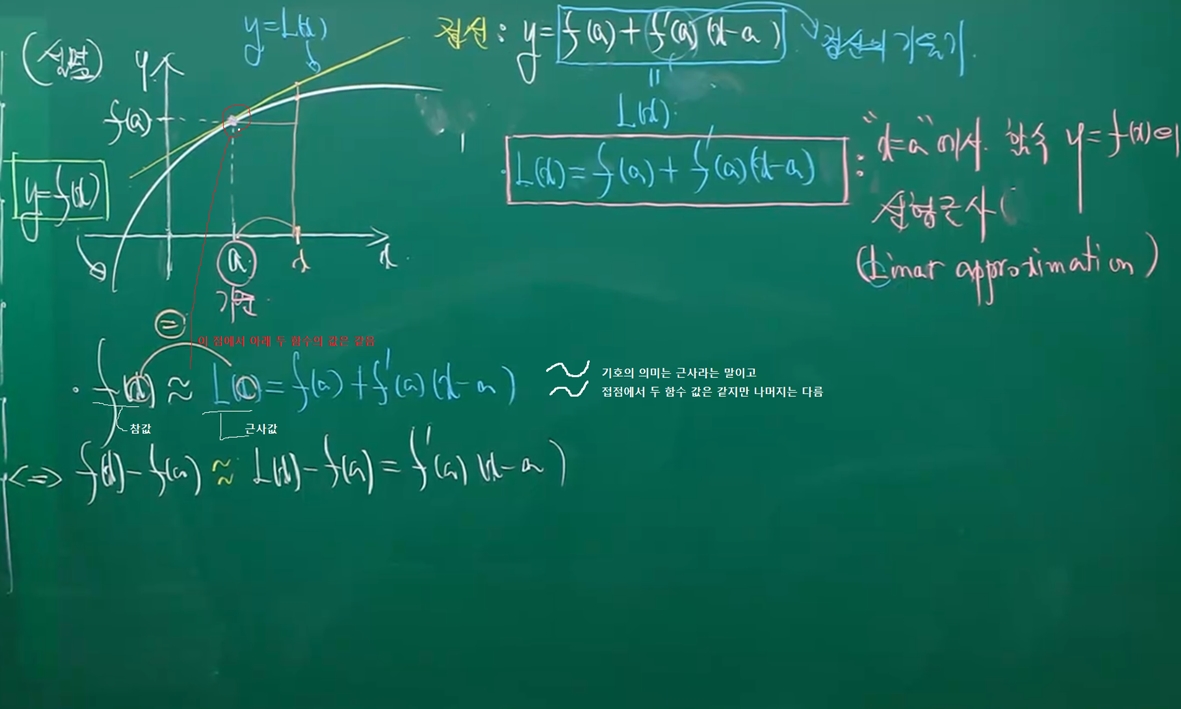 (설명)
y
y=L(x)
f(a)
y=f(x)
a
x
x
기준
접선 : y=f(a)+f'(a)(x-a)
접선의 기울기.
=
L(x).
L(x)=f(a)+f'(a)(x-a)
: "x=a"에서 함수 y=f(x)의
선형근사
(Linar approximation)
=
이 점에서 아래 두 함수의 값은 같음
· f(x) ≈ L(x)=f(a)+f'(a)(x-a)
참값
근사값
기호의 의미는 근사라는 말이고
접점에서 두 함수 값은 같지만 나머지는 다름
<=> f(x)-f(a) ≈ L(x)-f(a)=f'(a)(x-a)